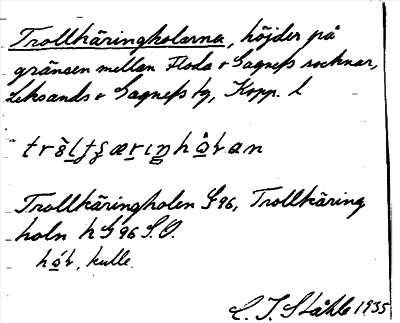 Trollkäringholarna, höjder på
gränsen mellan Floda o Gagnefs socknar,
Leksands o Gagnefs tg, Kopp. l
Trollkäringholen G 96, Trollkäring
holn h G 96 S.O.
kulle.
C. I. Ståhle 1935